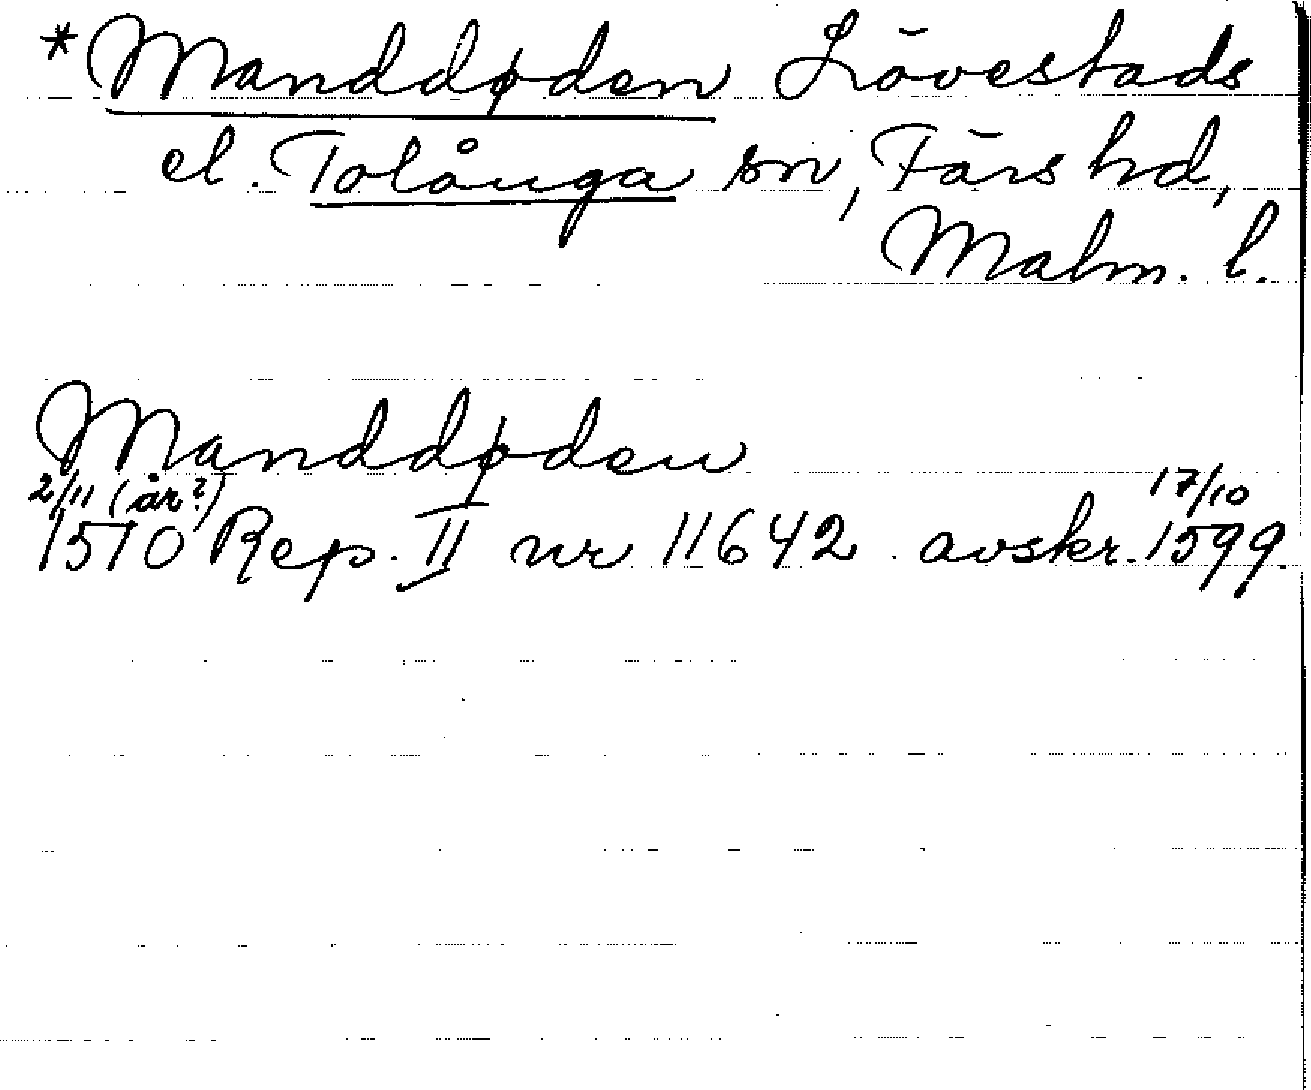 *Manddøden Lövestads
el. Tolånga sn, Färs hd,
Malm. l.
Manddøden
2/11 (år?) 17/10
1510 Rep. II nr 11642 avskr. 1599.